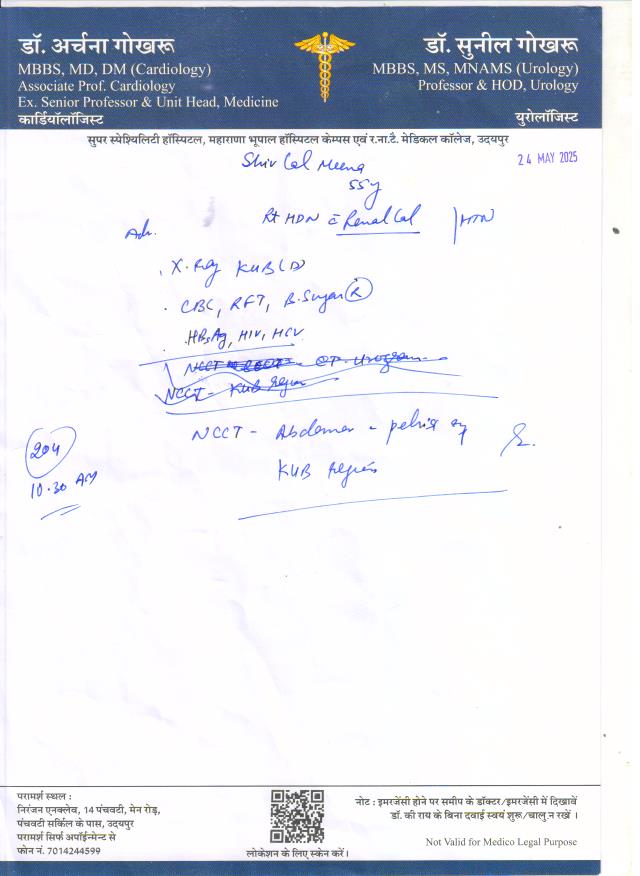 डॉ. अर्चना गोखरू
MBBS, MD, DM (Cardiology)
Associate Prof. Cardiology
Ex. Senior Professor & Unit Head, Medicine
कार्डियॉलॉजिस्ट
डॉ. सुनील गोखरू
MBBS, MS, MNAMS (Urology)
Professor & HOD, Urology
यूरोलॉजिस्ट
सुपर स्पेश्यिलिटी हॉस्पिटल, महाराणा भूपाल हॉस्पिटल कैम्पस एवं र.ना.टै. मेडिकल कॉलेज, उदयपुर
24 MAY 2025
Shiv Lal Meena
55y
Rt HDN c̄ Renal Cal | HTN
Adv.
X-Ray KUB (D)
CBC, RFT, B. Sugar (R)
HBsAg, HIV, HCV
NCCT CT-Urogram
NCCT- KUB Region
NCCT - Abdomen pelvis
KUB Region
204
10.30 AM
परामर्श स्थल :
निरंजन एनक्लेव, 14 पंचवटी, मेन रोड़,
पंचवटी सर्किल के पास, उदयपुर
परामर्श सिर्फ अपॉईन्मेन्ट से
फोन नं. 7014244599
लोकेशन के लिए स्केन करें।
नोट : इमरजेंसी होने पर समीप के डॉक्टर/इमरजेंसी में दिखावें
डॉ. की राय के बिना दवाई स्वयं शुरू/चालु न रखें ।
Not Valid for Medico Legal Purpose